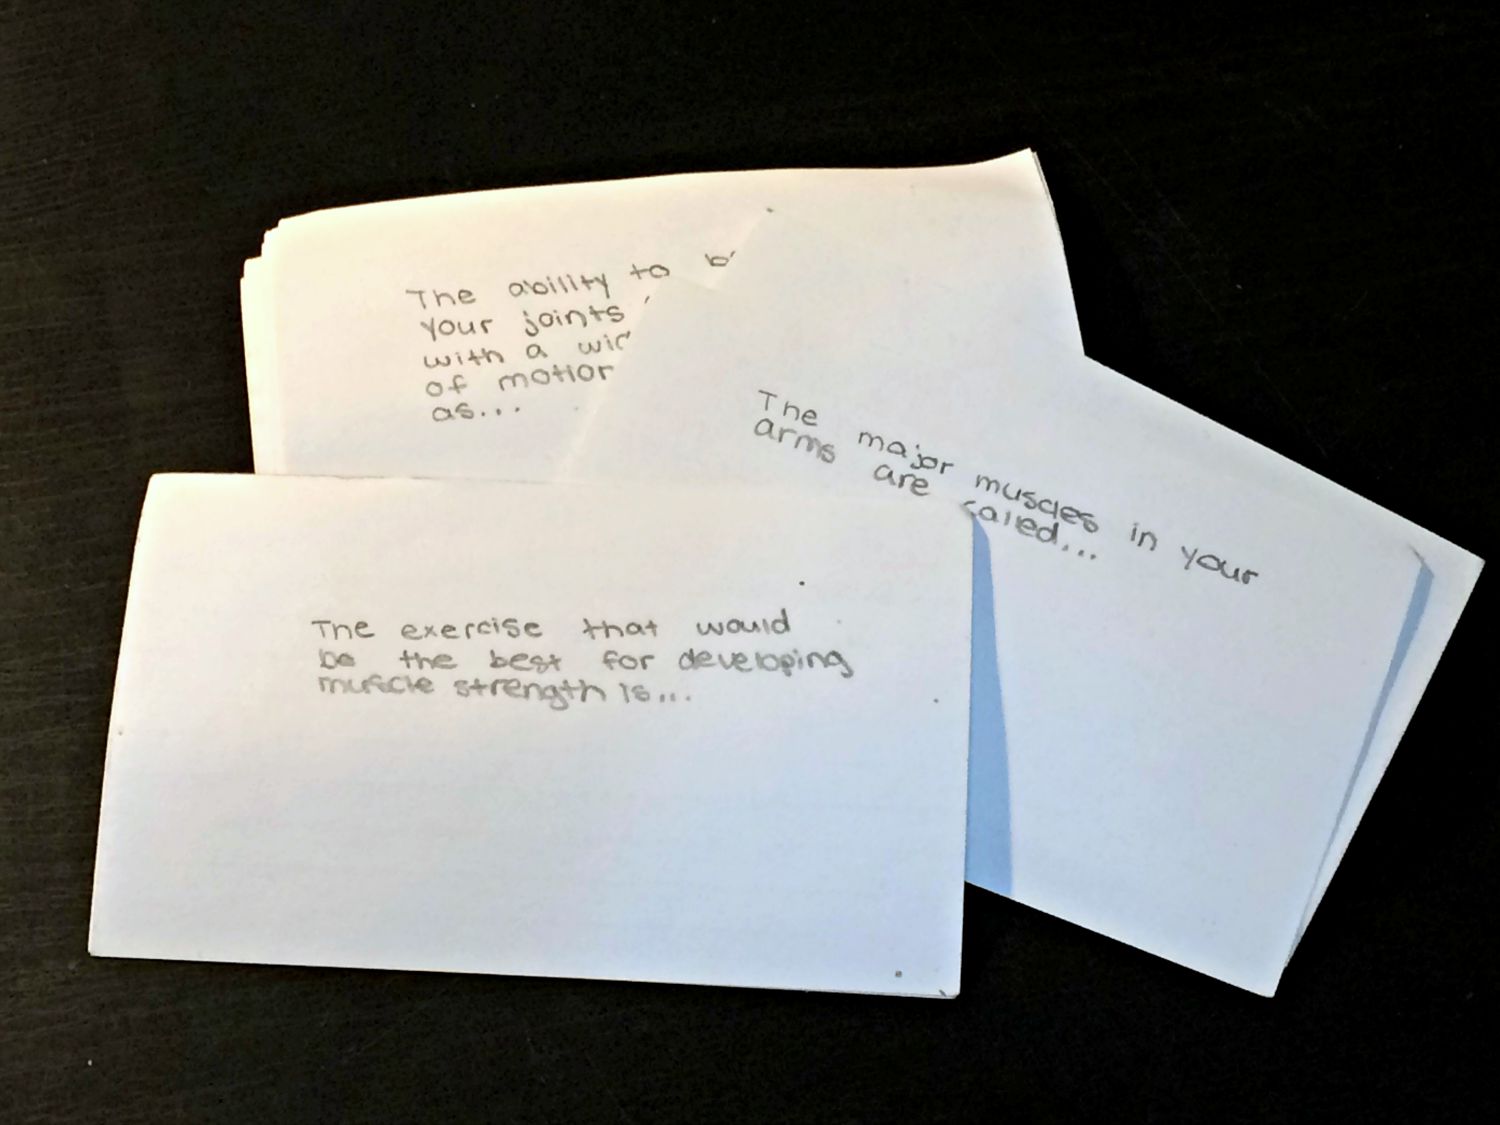 The ability to
your joints
with a
of
as...
The major muscles in your
arms are called...
The exercise that would
be the best for developing
muscle strength is...